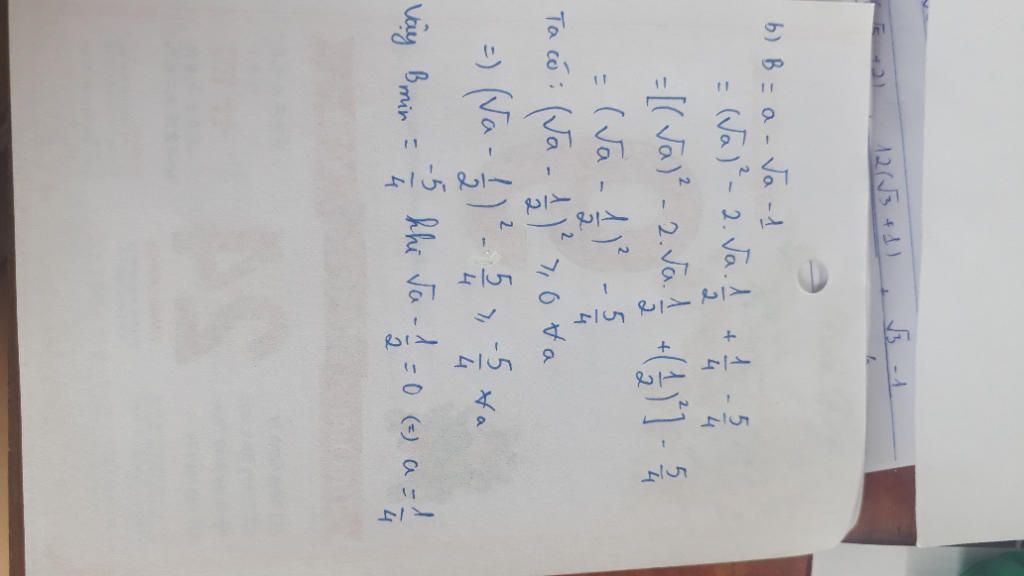 b) B = a - √a - 1
= (√a)² - 2.√a.1/2 + 1/4 - 5/4
= [(√a)² - 2.√a.1/2 + (1/2)²] - 5/4
= (√a - 1/2)² - 5/4
Ta có: (√a - 1/2)² ≥ 0 ∀a
=) (√a - 1/2)² - 5/4 ≥ -5/4 ∀a
Vậy Bmin = -5/4 khi √a - 1/2 = 0 (=) a = 1/4
+2)
12(√3 + 1) + √3 - 1